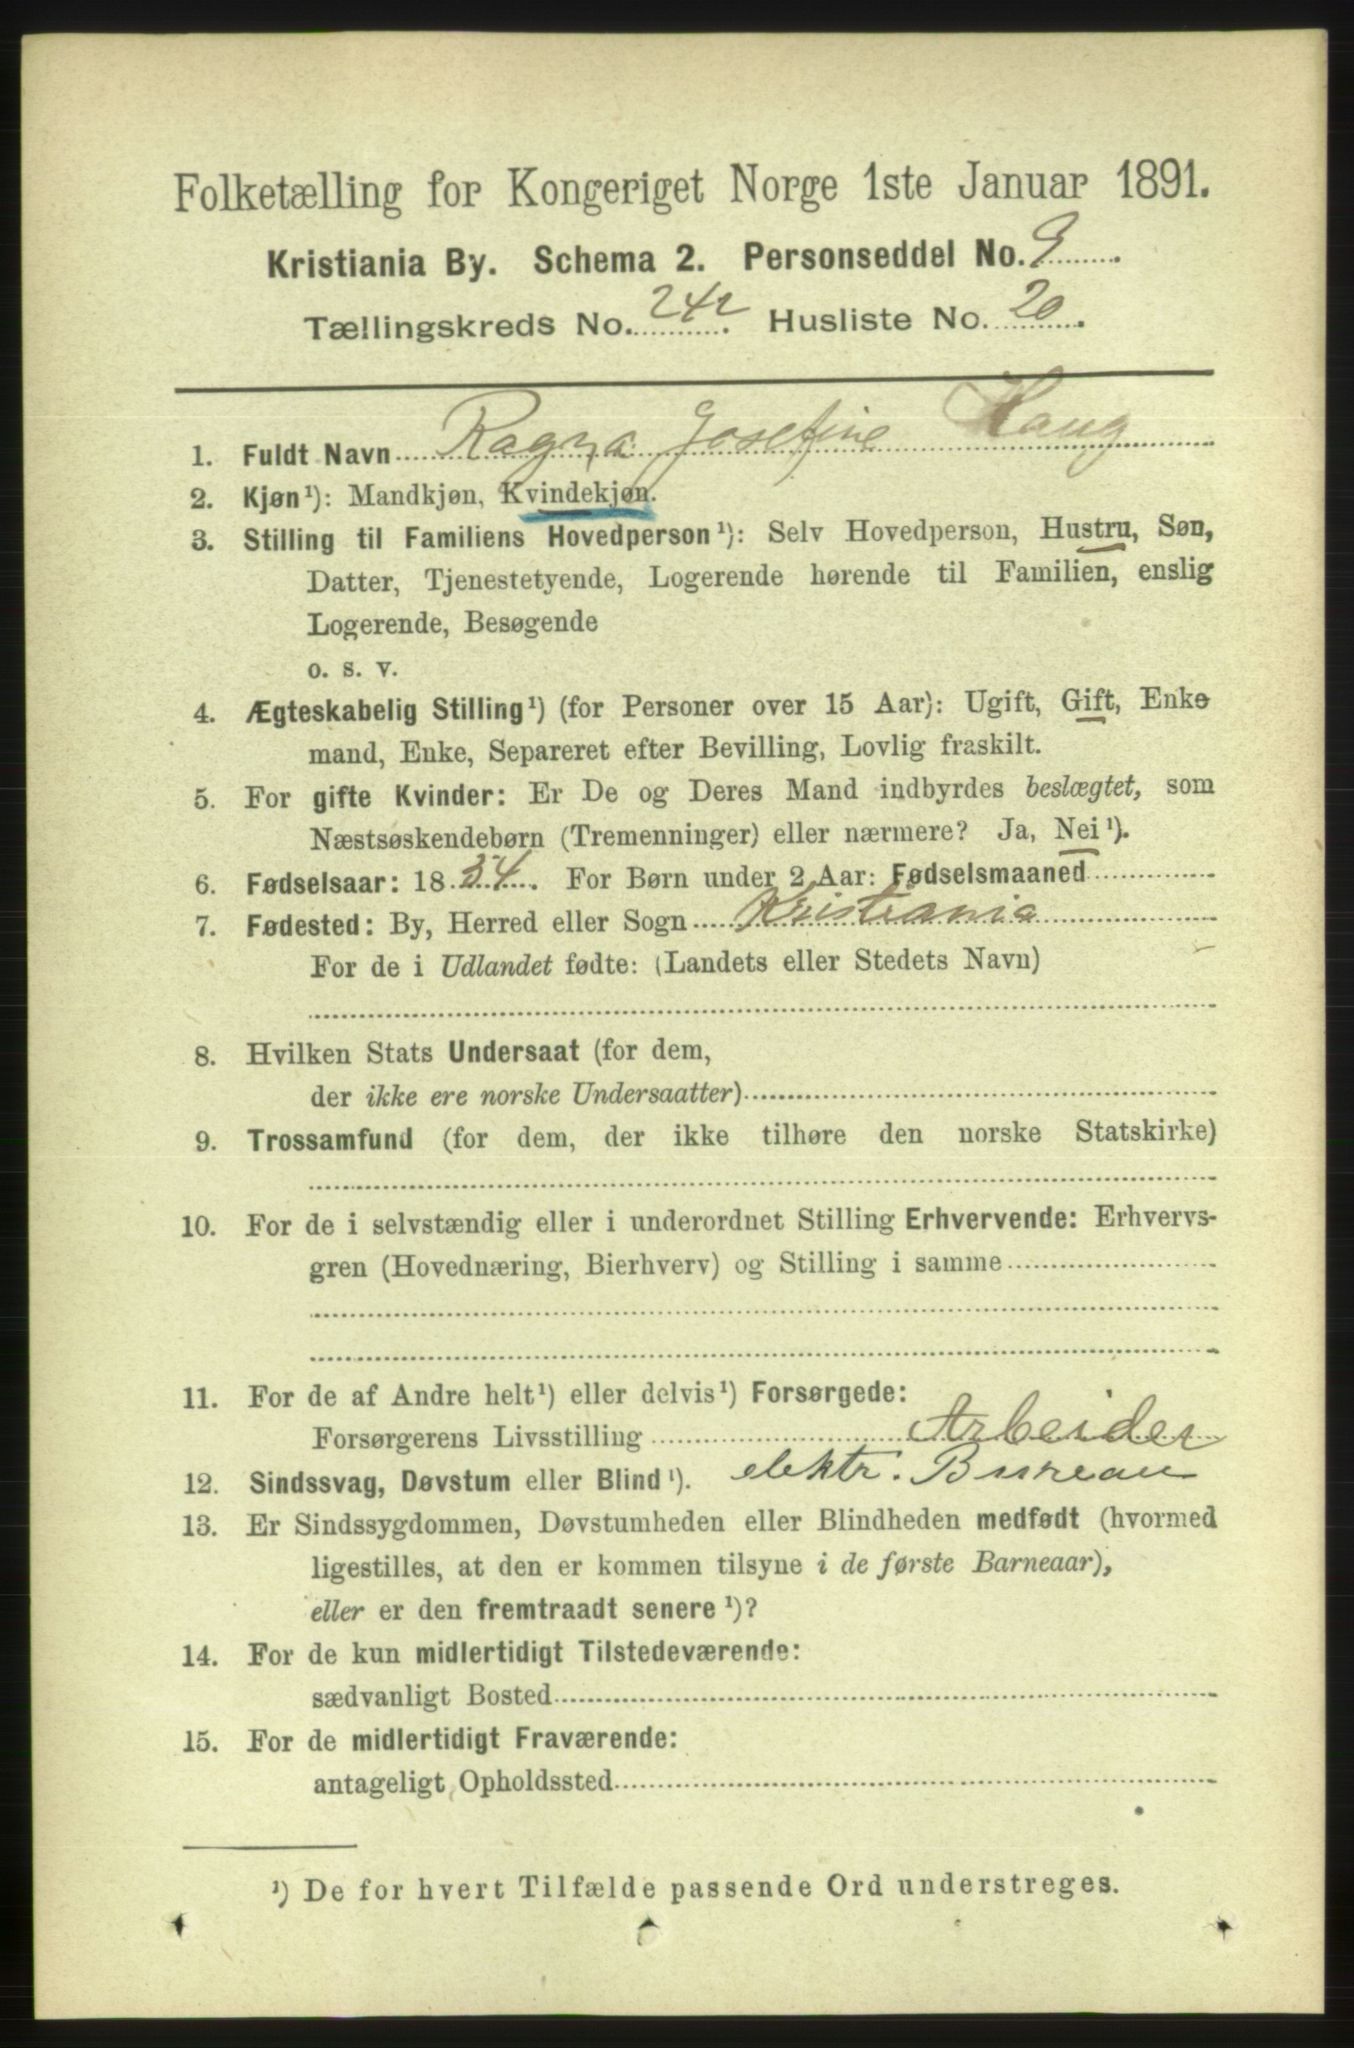 Folketælling for Kongeriget Norge 1ste Januar 1891.
Kristiania By. Schema 2. Personseddel No. 9.
Tællingskreds No. 242. Husliste No. 20.
1. Fuldt Navn Ragna Josefine Haug
2. Kjøn¹): Mandkjøn, Kvindekjøn.
3. Stilling til Familiens Hovedperson¹): Selv Hovedperson, Hustru, Søn,
Datter, Tjenestetyende, Logerende hørende til Familien, enslig
Logerende, Besøgende
o. s. v.
4. Ægteskabelig Stilling¹) (for Personer over 15 Aar): Ugift, Gift, Enke
mand, Enke, Separeret efter Bevilling, Lovlig fraskilt.
5. For gifte Kvinder: Er De og Deres Mand indbyrdes beslægtet, som
Næstsøskendebørn (Tremenninger) eller nærmere? Ja, Nei¹).
6. Fødselsaar: 18 . For Børn under 2 Aar: Fødselsmaaned
7. Fødested: By, Herred eller Sogn Kristiania
For de i Udlandet fødte: (Landets eller Stedets Navn)
8. Hvilken Stats Undersaat (for dem,
der ikke ere norske Undersaatter)
9. Trossamfund (for dem, der ikke tilhøre den norske Statskirke)
10. For de i selvstændig eller i underordnet Stilling Erhvervende: Erhvervs-
gren (Hovednæring, Bierhverv) og Stilling i samme
11. For de af Andre helt¹) eller delvis¹) Forsørgede:
Forsørgerens Livsstilling Arbeider
12. Sindssvag, Døvstum eller Blind¹). elektr. Bureau
13. Er Sindssygdommen, Døvstumheden eller Blindheden medfødt (hvormed
ligestilles, at den er kommen tilsyne i de første Barneaar),
eller er den fremtraadt senere¹)?
14. For de kun midlertidigt Tilstedeværende:
sædvanligt Bosted
15. For de midlertidigt Fraværende:
antageligt Opholdssted
¹) De for hvert Tilfælde passende Ord understreges.